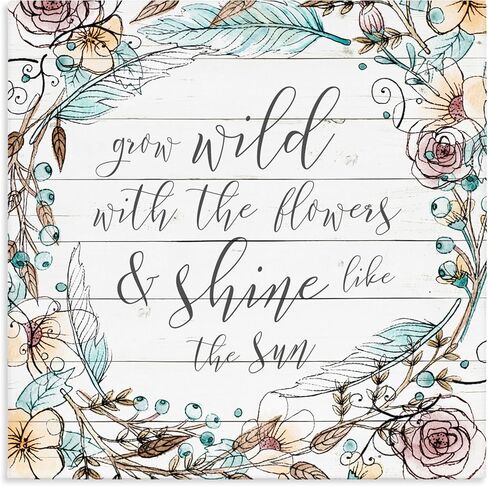 grow wild
with the flowers
& shine like
the sun